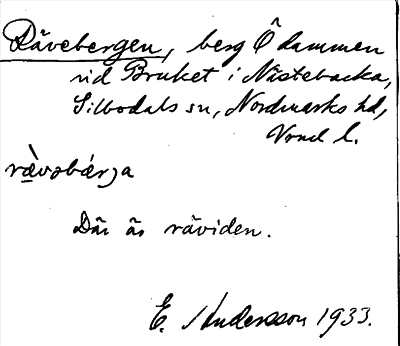 Rävebergen, berg Ô dammen
vid Bruket i Nästebacka,
Silbodals sn, Nordmarks hd,
Vrml l.
rævəbærja
Där är räviden.
E. Andersson 1933.